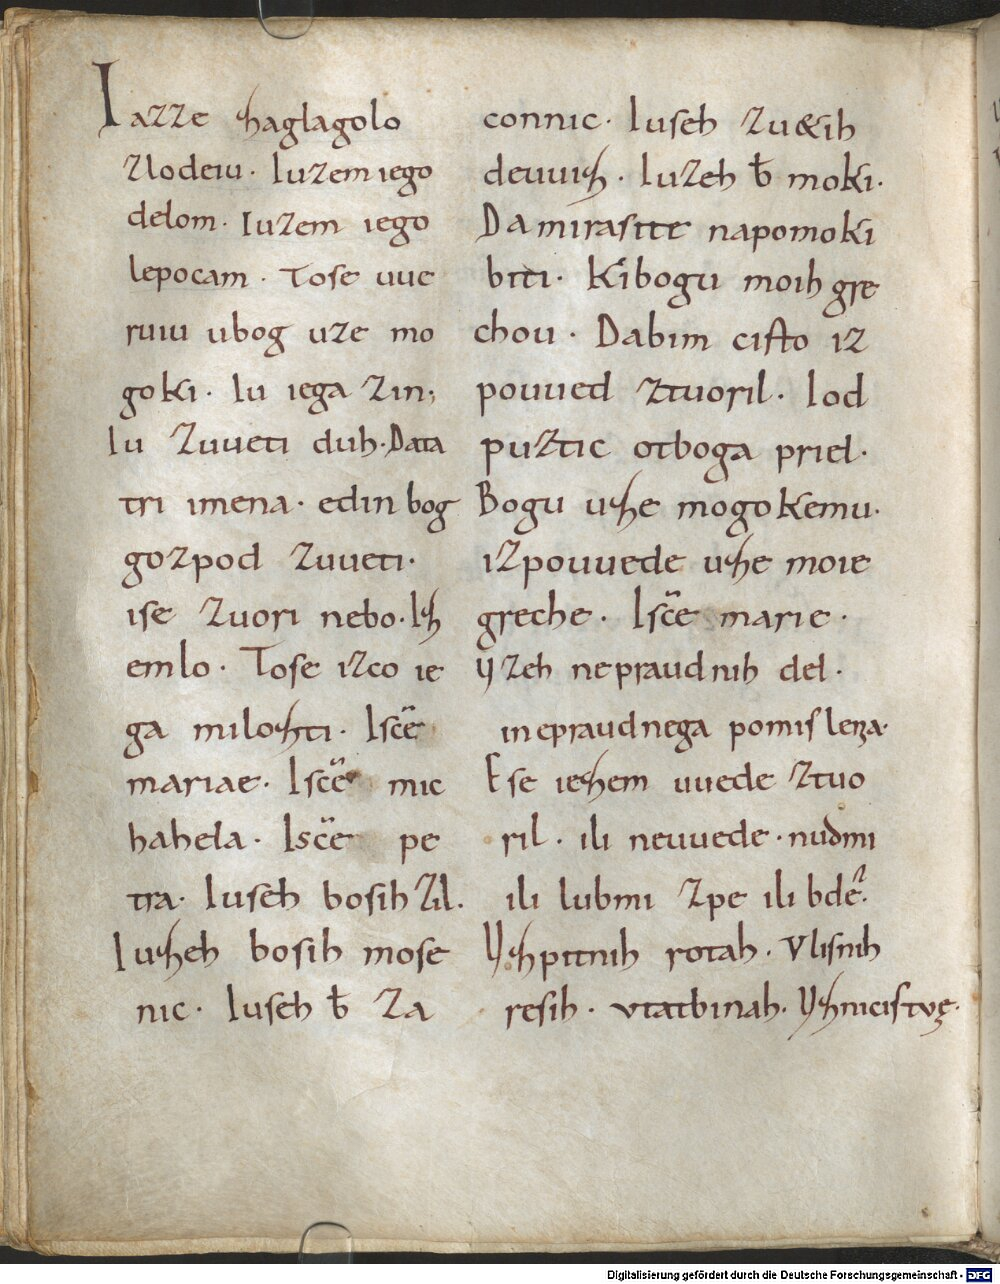 Iazze zaglagolo
zlodeiu · Iuzem iego
delom · Iuzem iego
lepocam · Tose uue
ruiu ubog uze mo
goki · Iu iega zin ;
Iu zuueti duh · Data
tri imena · edin bog
gozpod zuueti ·
ise zuori nebo · Iz
emlo · Tose izco ie
ga milozti · Isc̄e
mariae · Isc̄e mic
hahela · Isc̄e pe
tra · Iuseh bosih zil .
Iuzeh bosih mose
nic · Iuseh b̄ za
connic · Iuseh zu&ih
deuuiz · Iuzeh b̄ moki ·
Da mirasite napomoki
biti · Kibogu moih gre
chou · Dabim cisto iz
pouued ztuoril · Iod
puztic otboga priel ·
Bogu uze mogokemu ·
izpouuede uze moie
greche · Isc̄e marie ·
Vzeh nepraudnih del ·
inepraudnega pomislena ·
Ese iezem uuede ztuo
ril · ili neuuede · nudmi
ili lubmi zpe ili bdē .
Vzpitnih rotah · Vlisnih
resih · vtatbinah · Vznicistvę ·
Digitalisierung gefördert durch die Deutsche Forschungsgemeinschaft - DFG